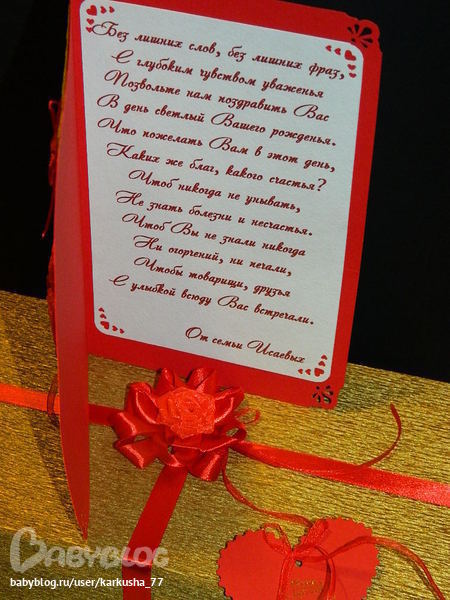 Без лишних слов, без лишних фраз,
С глубоким чувством уваженья
Позвольте нам поздравить Вас
В день светлый Вашего рожденья.
Что пожелать Вам в этот день,
Каких же благ, какого счастья?
Чтоб никогда не унывать,
Не знать болезни и несчастья.
Чтоб Вы не знали никогда
Ни огорчений, ни печали,
Чтобы товарищи, друзья
С улыбкой всюду Вас встречали.
От семьи Исаевых
BABYBLOG
babyblog.ru/user/karkusha_77